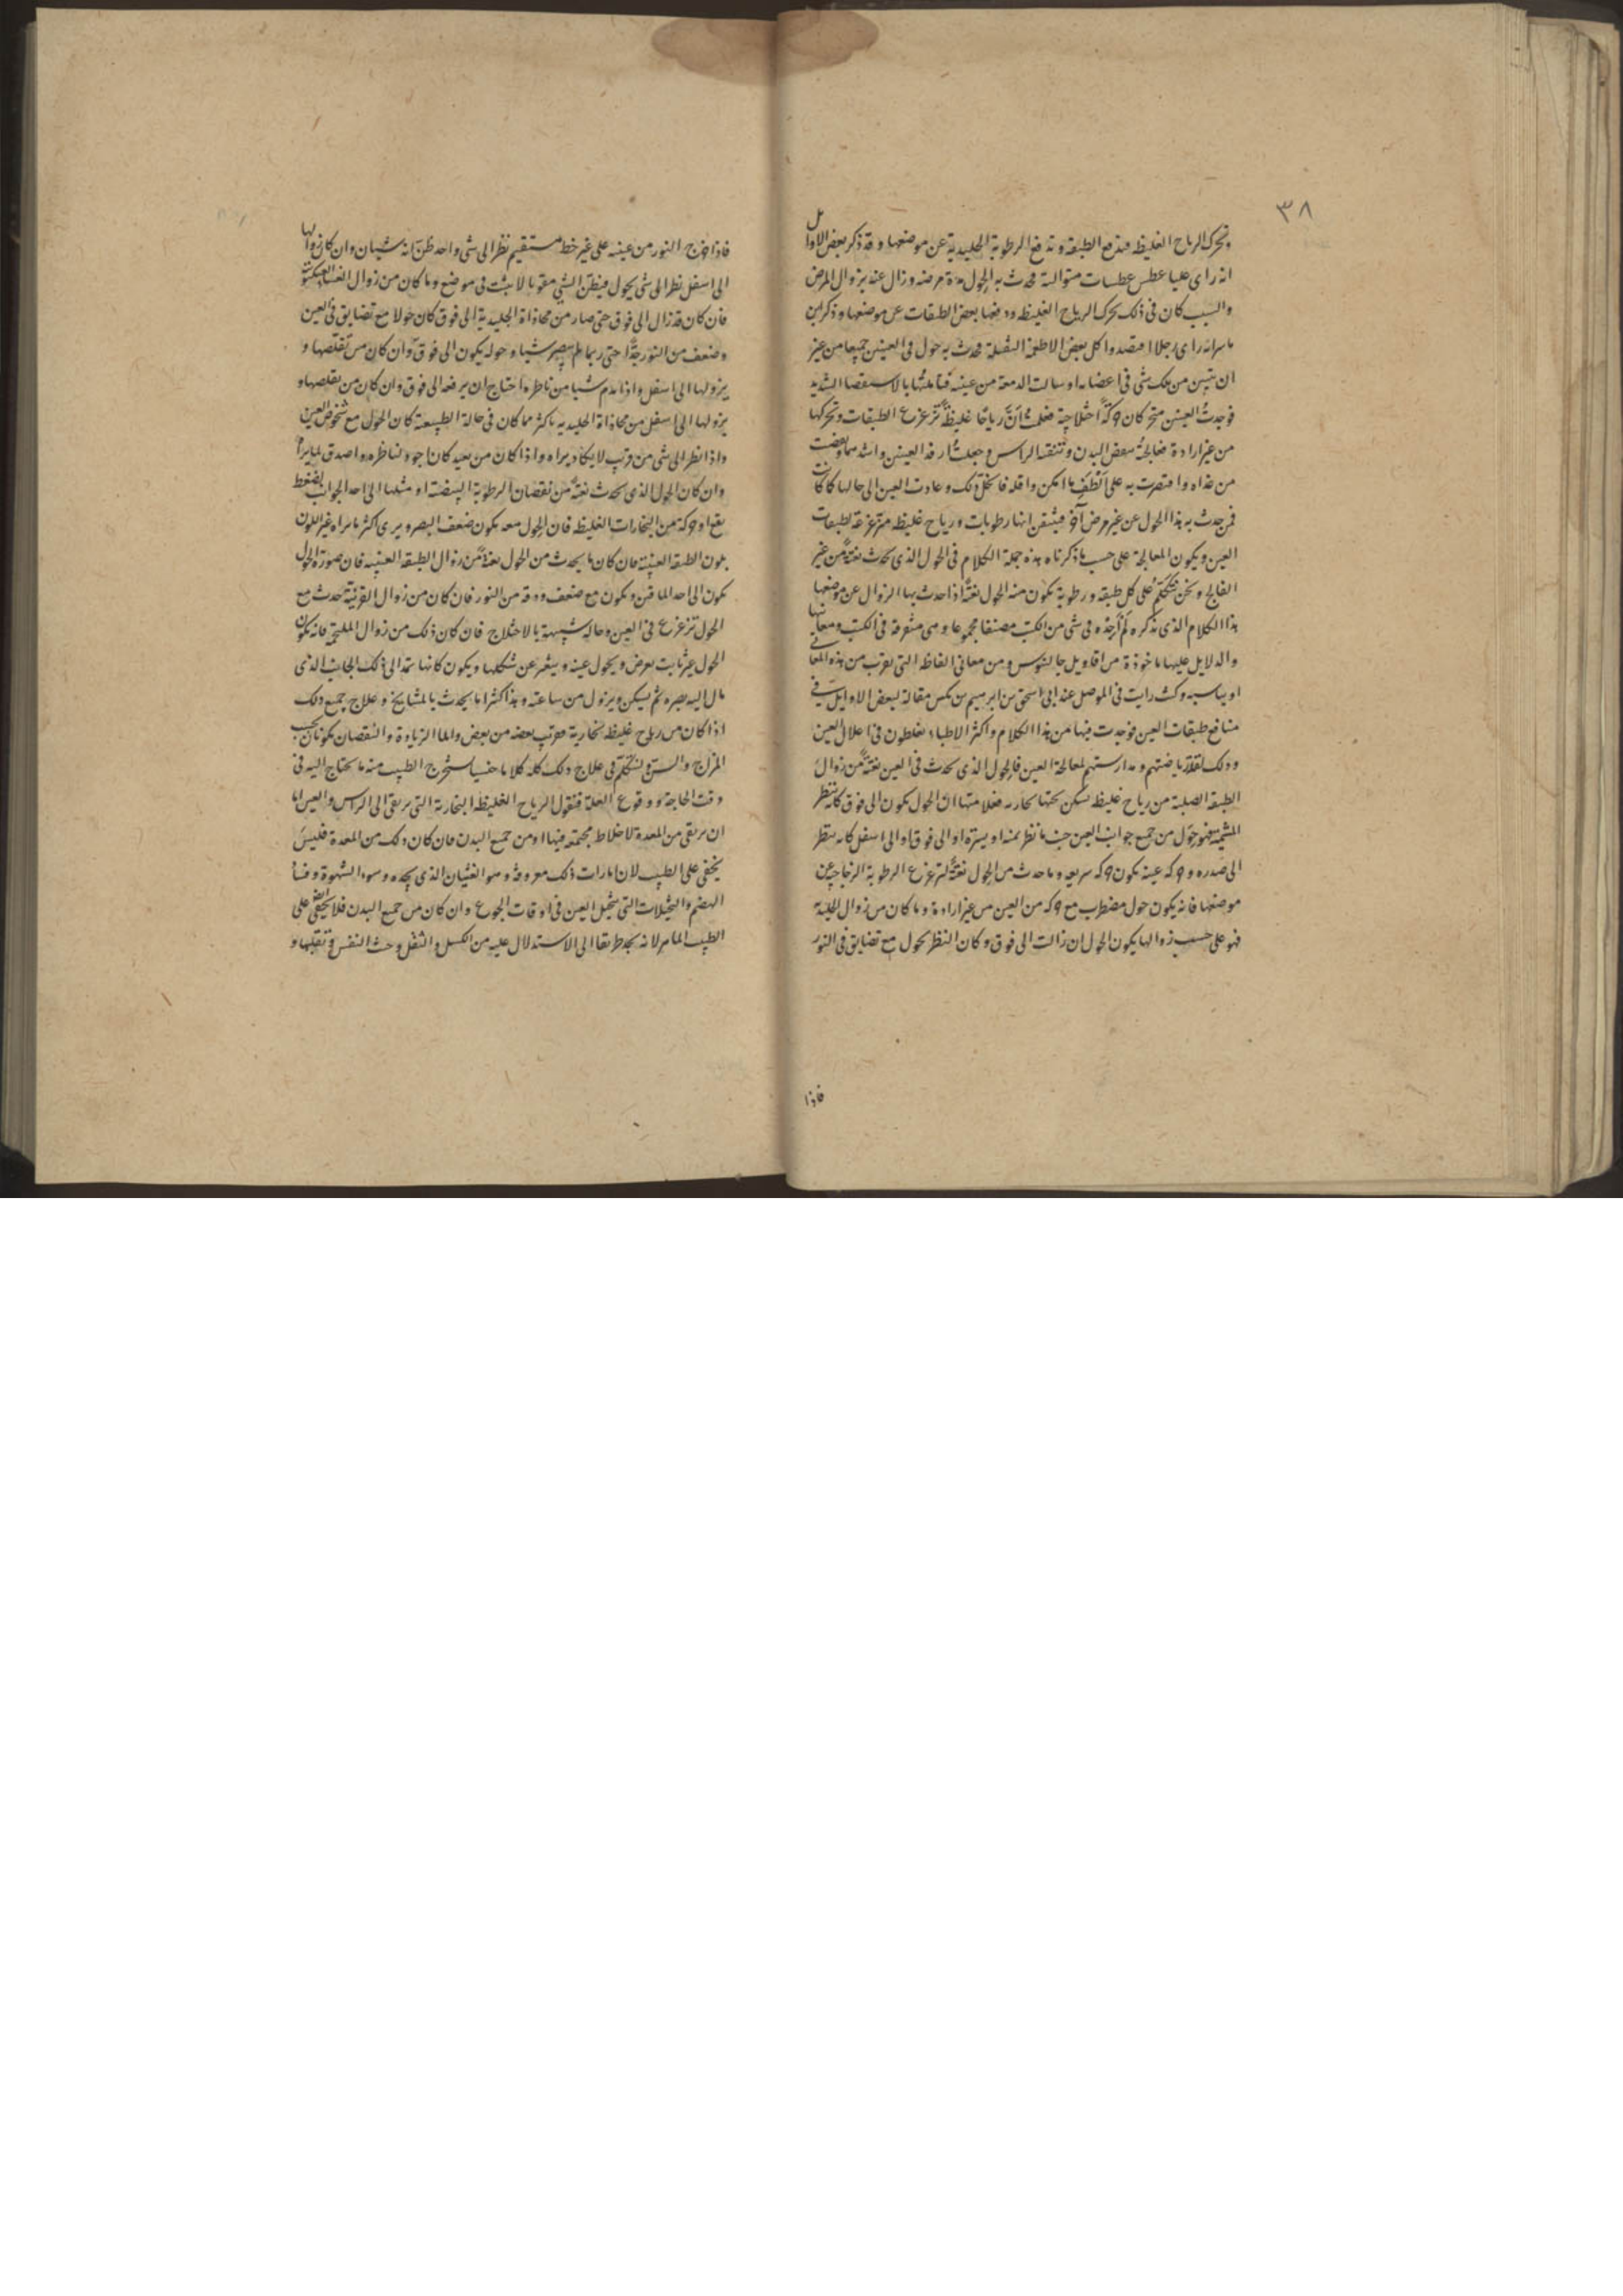 ٣٨
وتحرك الرياح الغليظه فتدفع الطبقه وتدفع الرطوبة الجليدية عن موضعها وقد ذكر بعض الاوايل
انه راى عليا عطس عطسات متوالية فحدث به الحول مدة مرضه وزال عنه بزوال المرض
والسبب كان فى ذلك تحرك الرياح الغليظه ودفعها بعض الطبقات عن موضعها وذكر ابن
ماسرانه راى رجلا افتصد واكل بعض الاطعمة الثقيلة فحدث به حول فى العينين جميعا من غير
ان يتبين من ذلك شى فى اعضايه او سالت الدمعة من عينيه فتاملتها بالاستقصا الشديد
فوجدت العينين متحركان حركةً اختلاجية فعلمت انّ رياحًا غليظةً تزعزع الطبقات وتحركها
من غير ارادة فعالجتُ بنفض البدن وتنقية الراس وجعلتُ ارفد العينين واشدهما ونقصت
من غذاه واقتصرت به على الطف ما امكن واقله فانحل ذلك وعادت العين الى حالها كما كانت
فمن حدث به هذا الحول عن غير مرض آخر فيتيقن انها رطوبات ورياح غليظه مزعزعة لطبقات
العين ويكون المعالجة على حسب ما ذكرناه هذه جملة الكلام فى الحول الذى يحدث بغتةً من غير
الفالج ونحن نتكلم على كل طبقه ورطوبة يكون منه الحول بغتةً اذا حدث بها الزوال عن موضعها
هذا الكلام الذى نذكره لم اجده فى شى من الكتب مصنفا مجموعا وهى متفرقة فى الكتب ومعانيها
والدلايل عليها ماخوذة من اقاويل جالينوس ومن معانى الفاظه التى تقرب من هذه المعانى
او يناسبه وكنت رايت فى الموصل عند ابى اسحق بن ابرهيم بن بكس مقالة لبعض الاوايل فى
منافع طبقات العين فوجدت فيها من هذا الكلام واكثر الاطباء يغلطون فى اعلال العين
وذلك لقلة رياضتهم ومدارستهم لمعالجة العين فالحول الذى يحدث فى العين بغتةً من زوال
الطبقة الصلبة من رياح غليظه تسكن تحتها بخاريه فعلامتها ان الحول يكون الى فوق كانه ينظر
المشيمية فهو حول من جميع جوانب العين حيث ما نظر يمنة او يسرة او الى فوق او الى اسفل كانه ينظر
الى صدره وحركة عينه يكون حركه سريعه وما حدث من الحول بغتةً لتزعزع الرطوبة الزجاجية عن
موضعها فانه يكون حول مضطرب مع حركه من العين من غير ارادة وما كان من زوال الجليدية
فهو على حسب زوالها يكون الحول ان زالت الى فوق وكان النظر بحول مع تضايق فى النور
فاذا
فاذا خرج النور من عينيه على غير خط مستقيم نظر الى شى واحد ظن انه شيئان وان كان زوالها
الى اسفل نظر الى شى بحول فيظن الشى مقوبا لا يثبت فى موضع وما كان من زوال الغشا العنكبوتية
فان كان قد زال الى فوق حتى صار من محاذاة الجليدية الى فوق كان حولا مع تضايق فى العين
وضعف من النور جدًّا حتى ربما لم يبصر شيئا وحوله يكون الى فوق وان كان من تقلصها و
نزولها الى اسفل واذا قدم شيئا من ناظره احتاج ان يرفعه الى فوق وان كان من تقلصها و
نزولها الى اسفل من محاذاة الجليديه باكثر مما كان فى حالة الطبيعة كان الحول مع شخوص العين
واذا نظر الى شى من قرب لا يكاد يراه واذا كان من بعيد كان اجود لناظره واصدق لما يراه
وان كان الحول الذى يحدث بغتةً من نقصان الرطوبة البيضية او مثلها الى احد الجوانب لضغط
يقع او حركة من البخارات الغليظه فان الحول معه يكون ضعف البصر ويرى اكثر ما يراه غير اللون
بلون الطبقه العنبية فان كان ما يحدث من الحول بغتةً من زوال الطبقه العنبيه فان صورة الحول
يكون الى احد الماقين ويكون مع ضعف ودقه من النور فان كان من زوال القرنية حدث مع
الحول تزعزع فى العين وحاله شبيهة بالاختلاج فان كان ذلك من زوال الملتحمة فانه يكون
الحول غير ثابت يعرض ويحول عينه ويتغير عن شكلها ويكون كانها تمتد الى ذلك الجانب الذى
مال اليه بصره ثم يسكن ويزول من ساعته وهذا اكثر ما يحدث بالمشايخ وعلاج جميع ذلك
اذا كان من رياح غليظه بخارية تقرب بعضه من بعض واما الزيادة والنقصان يكونان بحسب
المزاج والسن ولنتكلم فى علاج ذلك كله كلاما جنسيا يستخرج الطبيب منه ما يحتاج اليه فى
وقت الحاجة ووقوع العلة فنقول الرياح الغليظه البخارية التى ترتقى الى الراس والعين اما
ان ترتقى من المعدة لاخلاط مجتمعه فيها او من جميع البدن فان كان ذلك من المعدة فليس
يخفى على الطبيب لان امارات ذلك معروفه وهو الغثيان الذى يجده وسوء الشهوة وفساد
الهضم والتخيلات التى تتخيل العين فى اوقات الجوع وان كان من جميع البدن فلا يخفى ايضا على
الطبيب الماهر لانه يجد طريقا الى الاستدلال عليه من الكسل والثقل وخبث النفس وتقلبها و